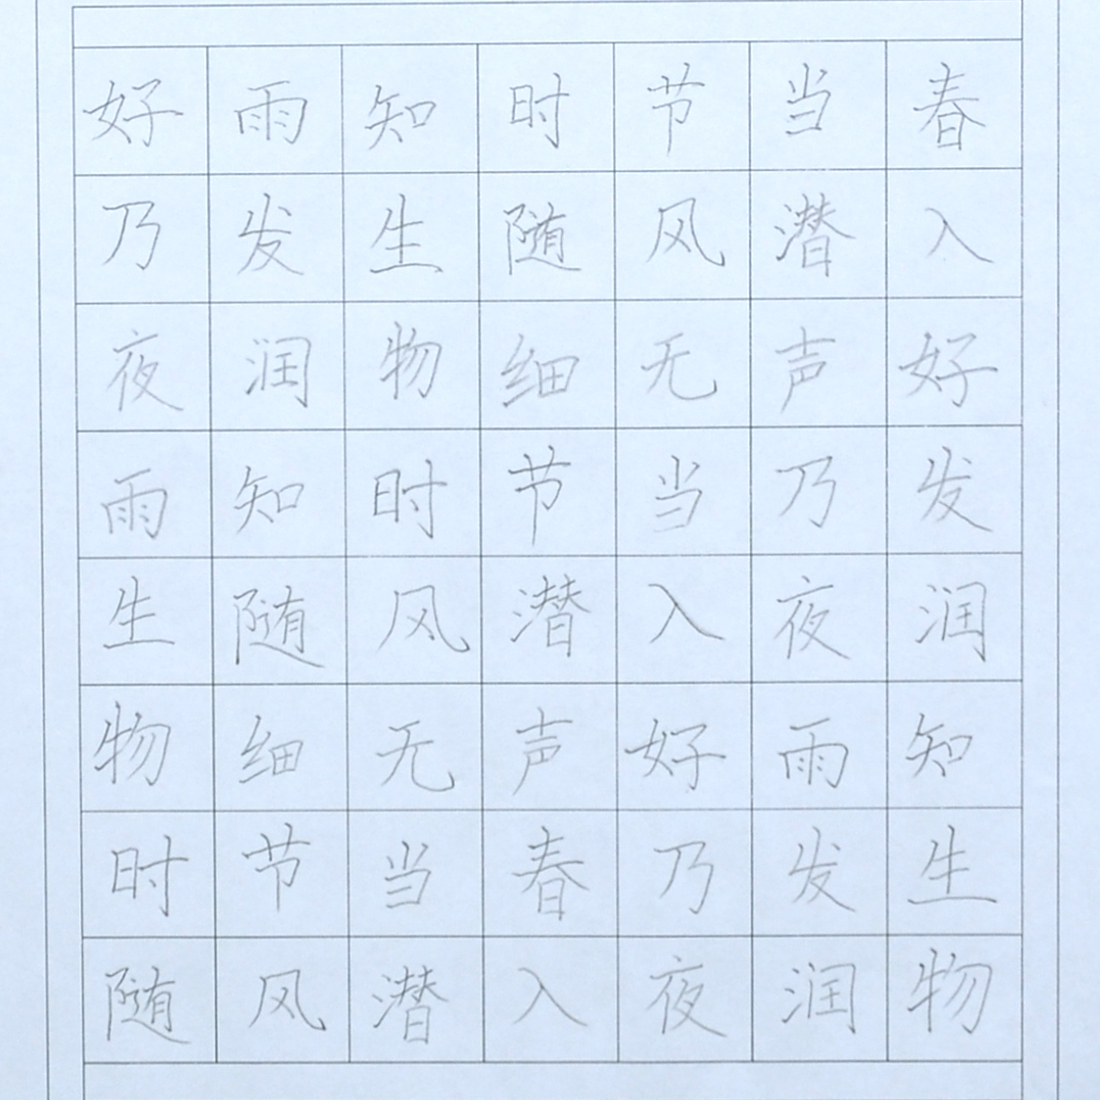 好雨知时节当春
乃发生随风潜入
夜润物细无声好
雨知时节当乃发
生随风潜入夜润
物细无声好雨知
时节当春乃发生
随风潜入夜润物